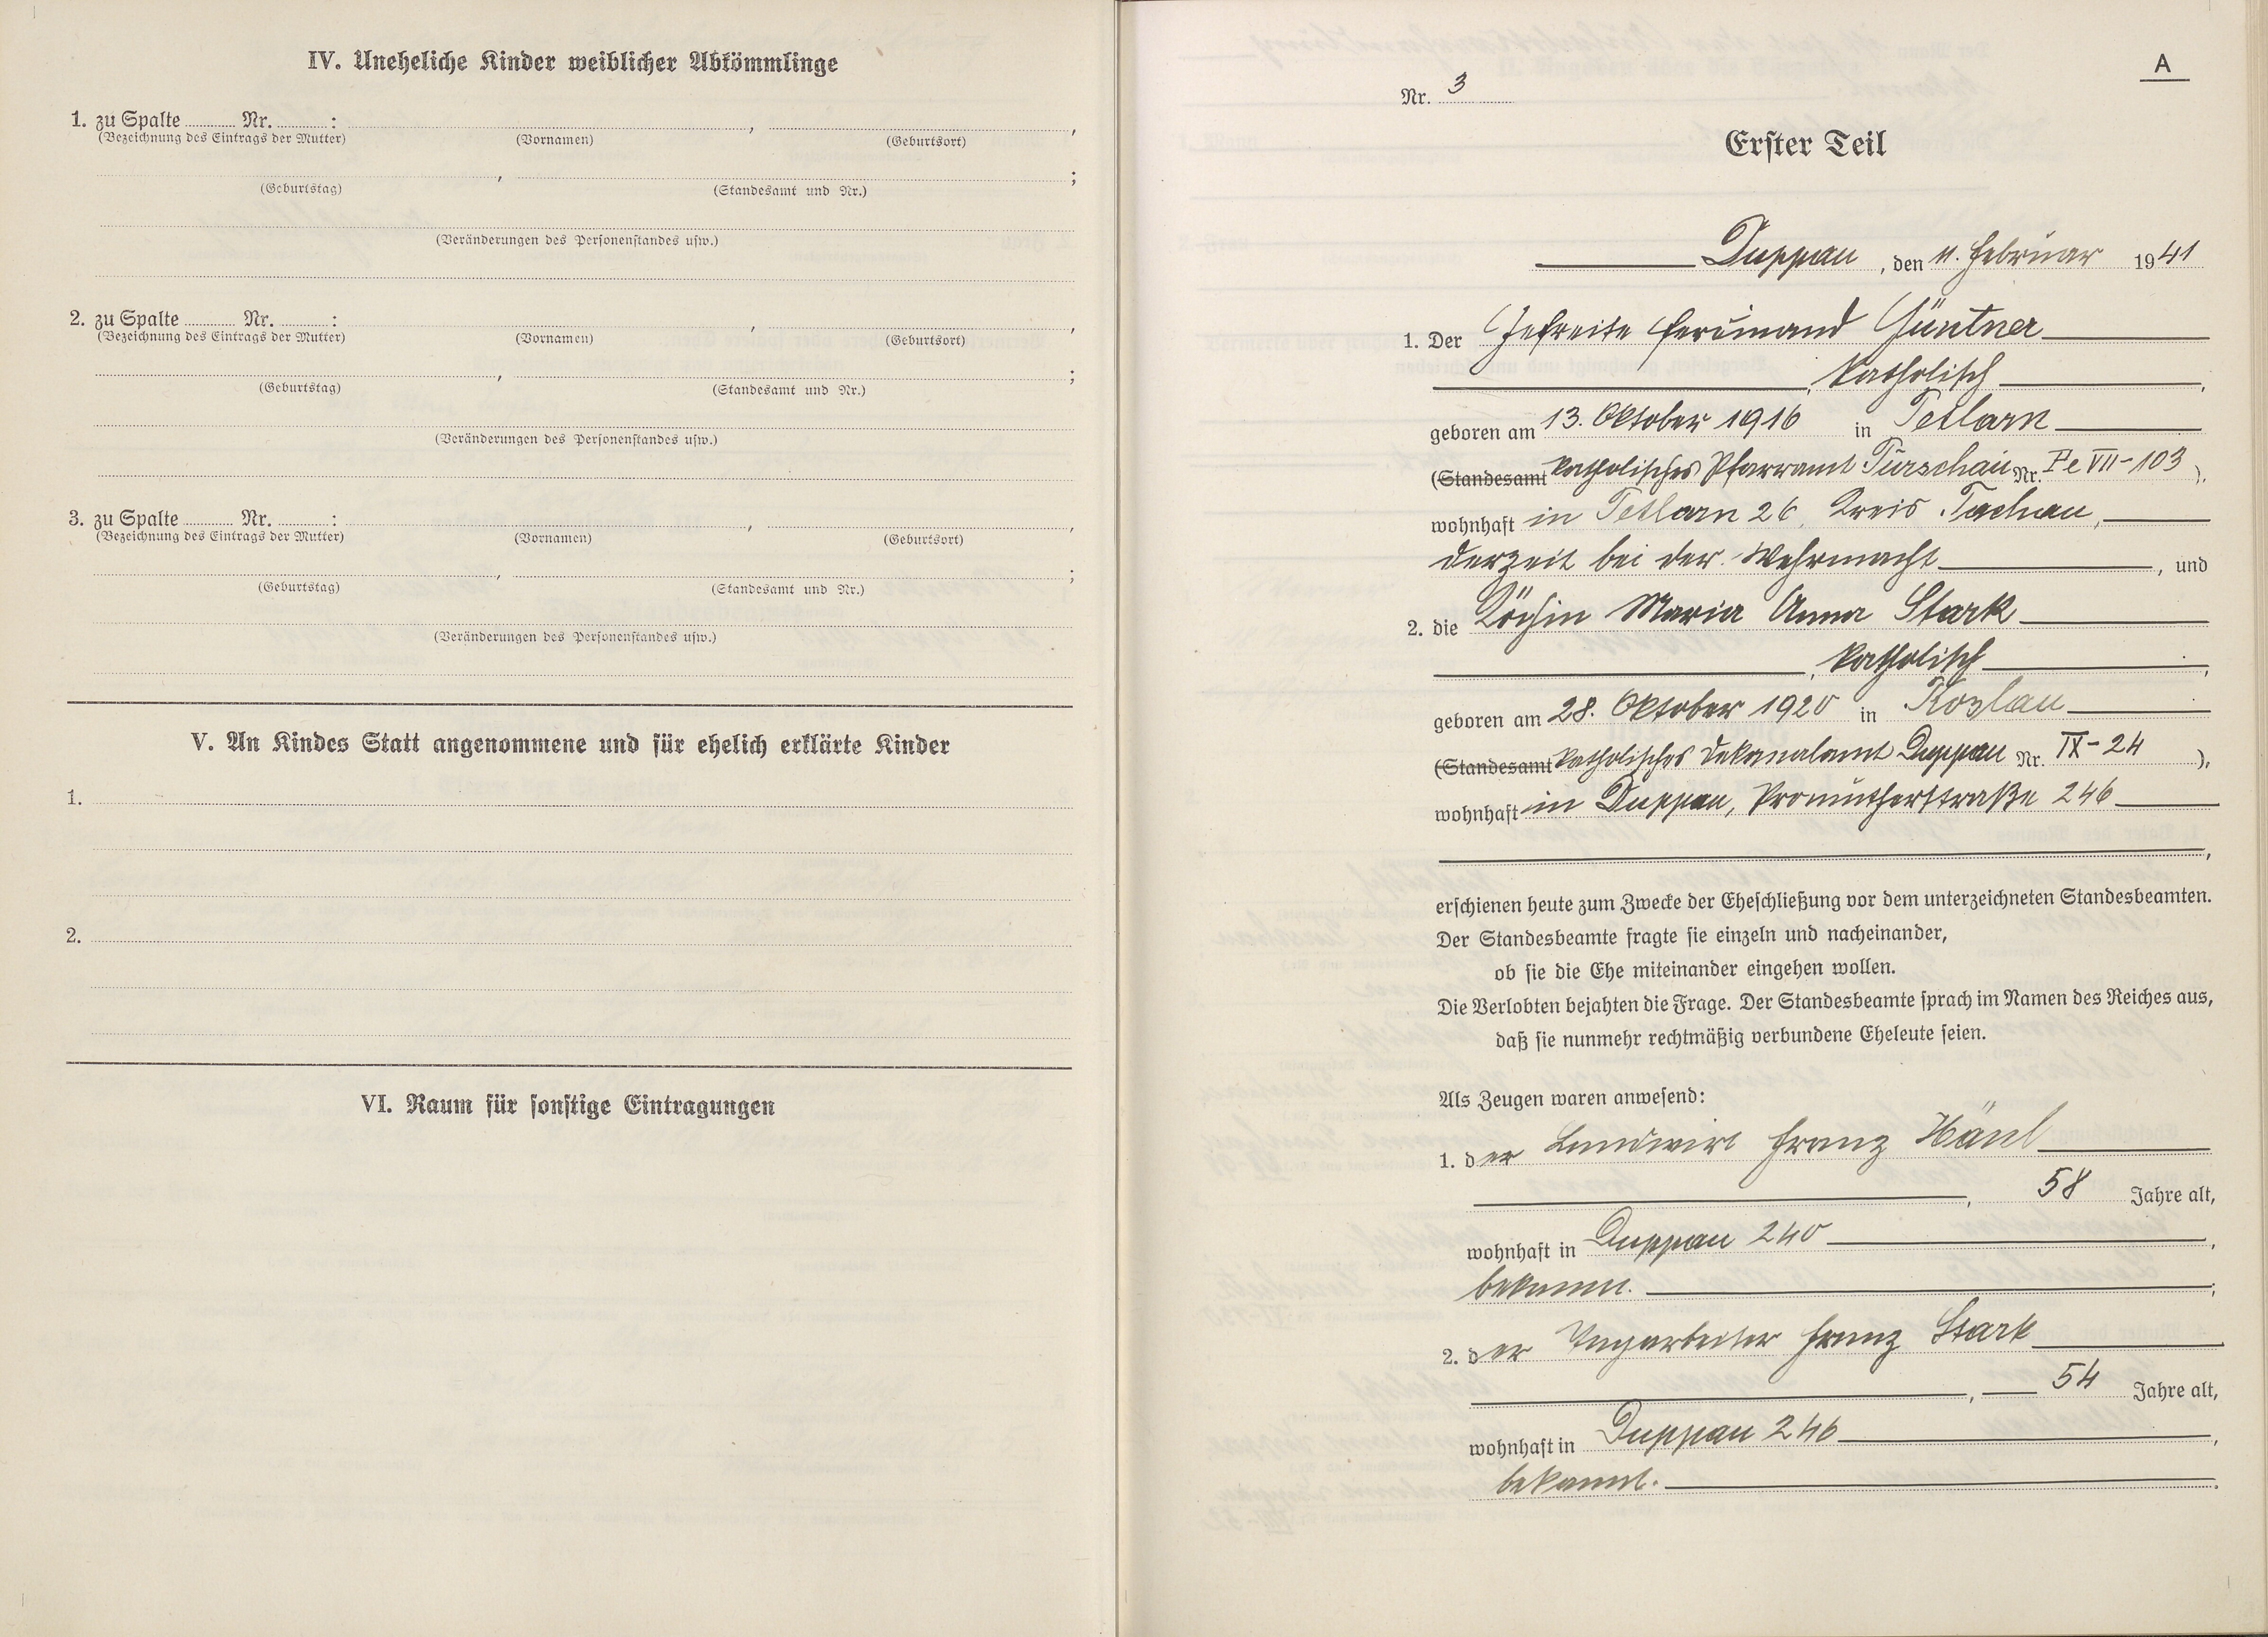 IV. Uneheliche Kinder weiblicher Abkömmlinge
1. zu Spalte ............ Nr. ............ :
(Bezeichnung des Eintrags der Mutter) (Vornamen) (Geburtsort)
(Geburtstag) (Standesamt und Nr.)
(Veränderungen des Personenstandes usw.)
2. zu Spalte ............ Nr. ............ :
(Bezeichnung des Eintrags der Mutter) (Vornamen) (Geburtsort)
(Geburtstag) (Standesamt und Nr.)
(Veränderungen des Personenstandes usw.)
3. zu Spalte ............ Nr. ............ :
(Bezeichnung des Eintrags der Mutter) (Vornamen) (Geburtsort)
(Geburtstag) (Standesamt und Nr.)
(Veränderungen des Personenstandes usw.)
V. An Kindes Statt angenommene und für ehelich erklärte Kinder
1.
2.
VI. Raum für sonstige Eintragungen
A
Nr. 3
Erster Teil
Duppau, den 11. Februar 1941
1. Der Gefreite Ferdinand Güntner
, katholisch,
geboren am 13. Oktober 1916 in Tetlarn
(Standesamt katholisches Pfarramt Purschau Nr. Pe VII-103),
wohnhaft in Tetlarn 26, Kreis Tachau,
derzeit bei der Wehrmacht, und
2. die Köchin Maria Anna Stark
, katholisch,
geboren am 28. Oktober 1920 in Kozlau
(Standesamt katholisches Dekanalamt Duppau Nr. IX-24),
wohnhaft in Duppau, Promutherstraße 246
,
erschienen heute zum Zwecke der Eheschließung vor dem unterzeichneten Standesbeamten.
Der Standesbeamte fragte sie einzeln und nacheinander,
ob sie die Ehe miteinander eingehen wollen.
Die Verlobten bejahten die Frage. Der Standesbeamte sprach im Namen des Reiches aus,
daß sie nunmehr rechtmäßig verbundene Eheleute seien.
Als Zeugen waren anwesend:
1. der Landwirt Franz Hänl
, 58 Jahre alt,
wohnhaft in Duppau 240,
bekannt.;
2. der Sägearbeiter Franz Stark
, 54 Jahre alt,
wohnhaft in Duppau 246,
bekannt.